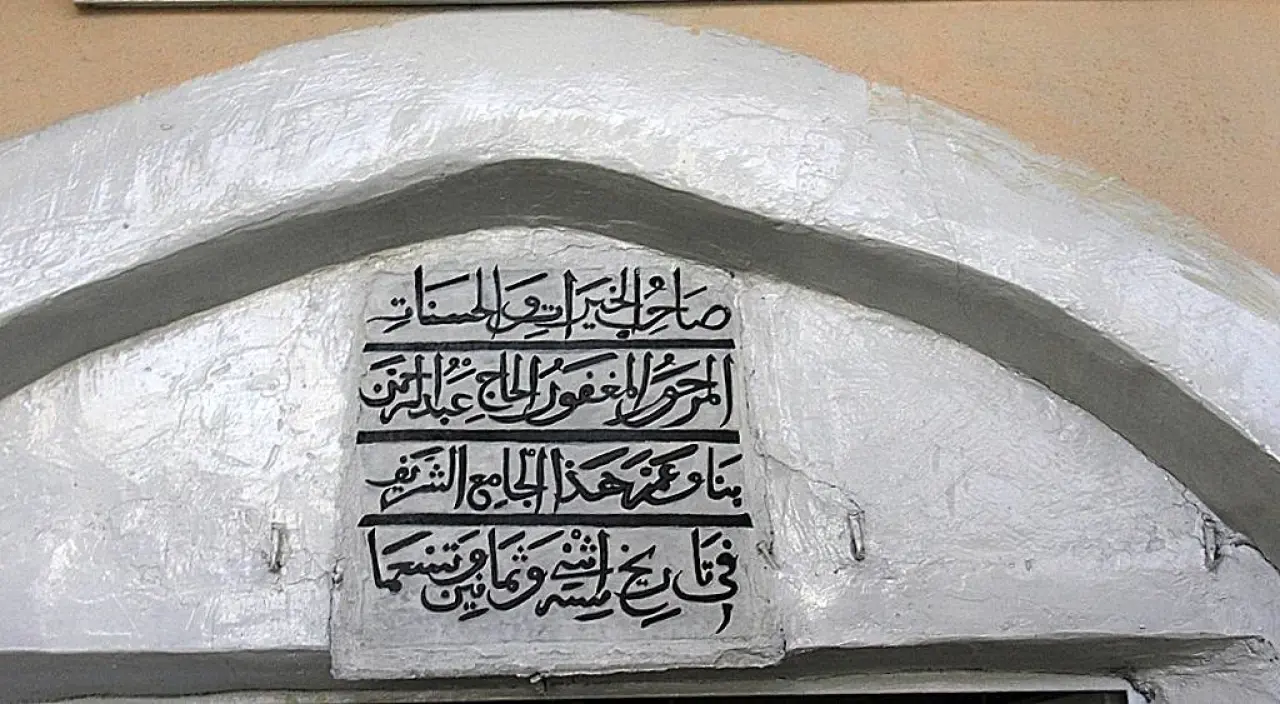 صاحب الخيرات و الحسنات
المرحوم المغفور الحاج عبد الرحمن
بنا وعمر هذا الجامع الشريف
في تاريخ سنه اثني وثمانين وتسعما